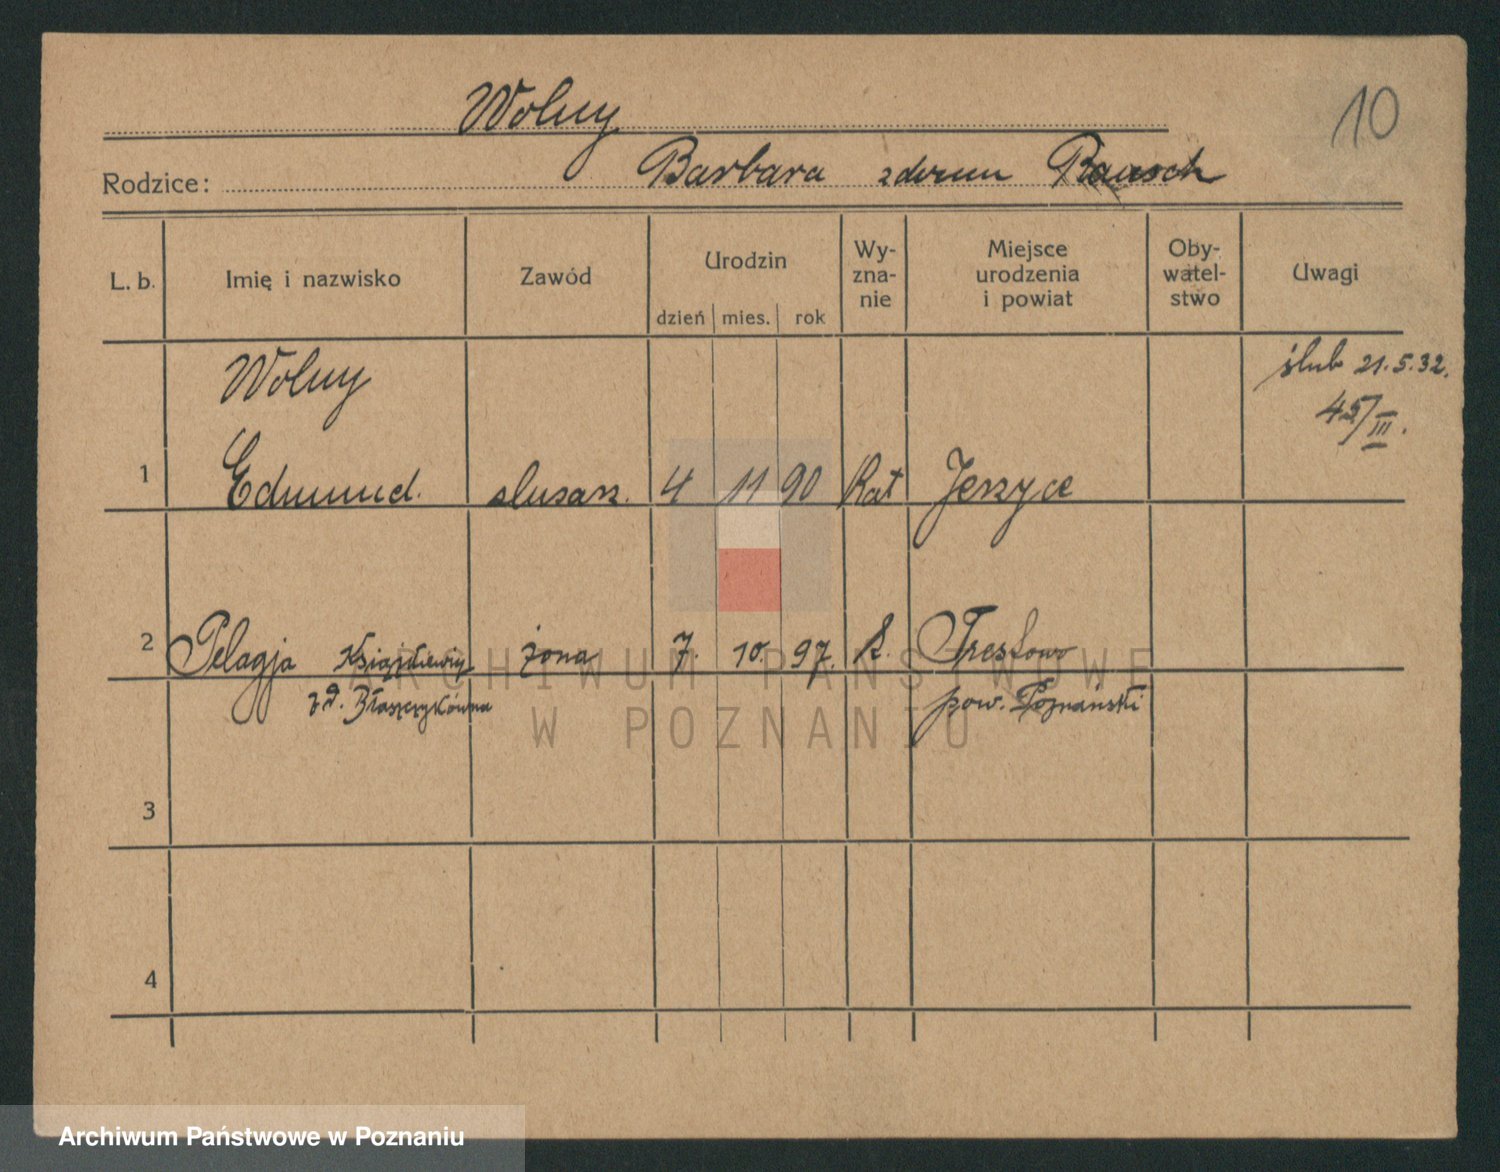 Wolny
10
Rodzice: Barbara z domu Bausch
L. b. Imię i nazwisko Zawód Urodzin dzień mies. rok Wy-zna-nie Miejsce urodzenia i powiat Oby-watel-stwo Uwagi
Wolny ślub 21.5.32.
45/III.
1 Edmund. slusarz. 4 11 90 Kat Jerzyce
2 Pelagja Książkiewicz żona 7. 10. 97. k. Treskowo
z d. Błaszczykówna pow. Poznański
3
4
ARCHIWUM PAŃSTWOWE
W POZNANIU
Archiwum Państwowe w Poznaniu